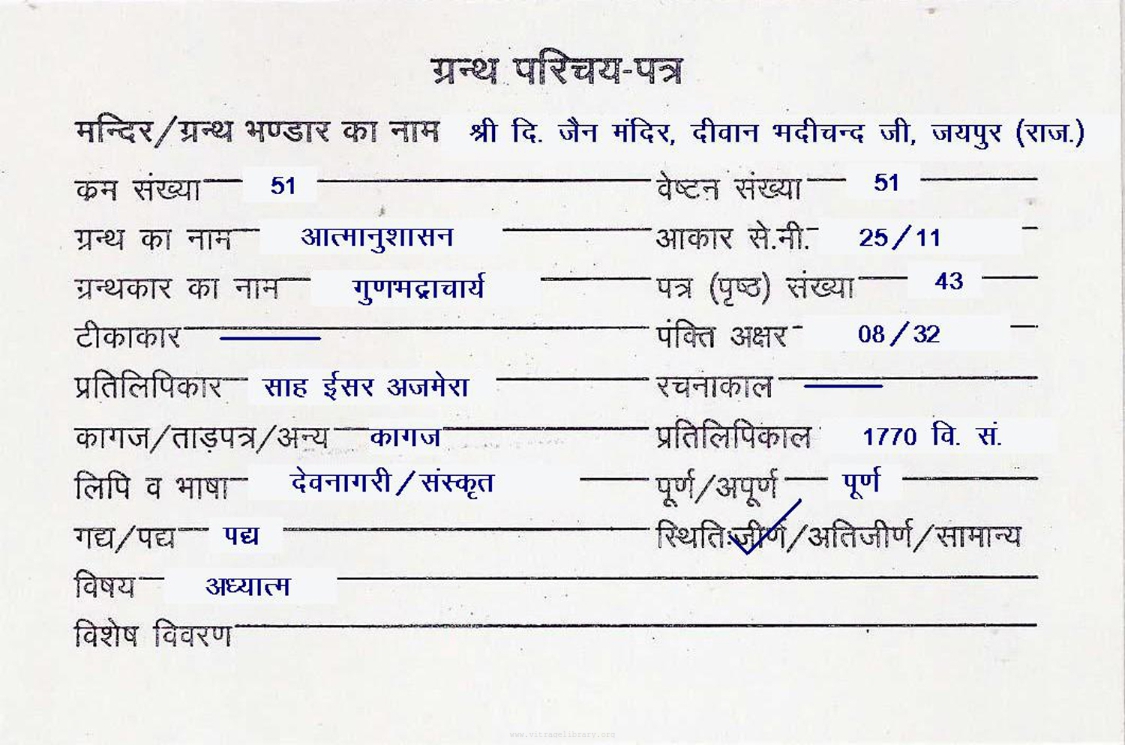 ग्रन्थ परिचय-पत्र
मन्दिर/ग्रन्थ भण्डार का नाम श्री दि. जैन मंदिर, दीवान भदीचन्द जी, जयपुर (राज.)
क्रम संख्या 51 वेष्टन संख्या 51
ग्रन्थ का नाम आत्मानुशासन आकार से.मी. 25/11
ग्रन्थकार का नाम गुणभद्राचार्य पत्र (पृष्ठ) संख्या 43
टीकाकार पंक्ति अक्षर 08/32
प्रतिलिपिकार साह ईसर अजमेरा रचनाकाल
कागज/ताड़पत्र/अन्य कागज प्रतिलिपिकाल 1770 वि. सं.
लिपि व भाषा देवनागरी/संस्कृत पूर्ण/अपूर्ण पूर्ण
गद्य/पद्य पद्य स्थितिःजीर्ण/अतिजीर्ण/सामान्य
विषय अध्यात्म
विशेष विवरण